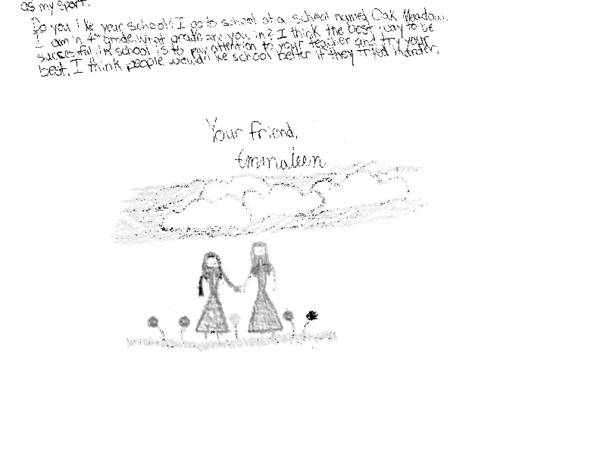 as my sport.
Do you like your school? I go to school at a school named Oak Meadow.
I am in 4th grade. what grade are you in? I think the best way to be
successful in school is to pay attention to your teacher and try your
best. I think people would like school better if they tried harder.
Your friend,
Emmaleen